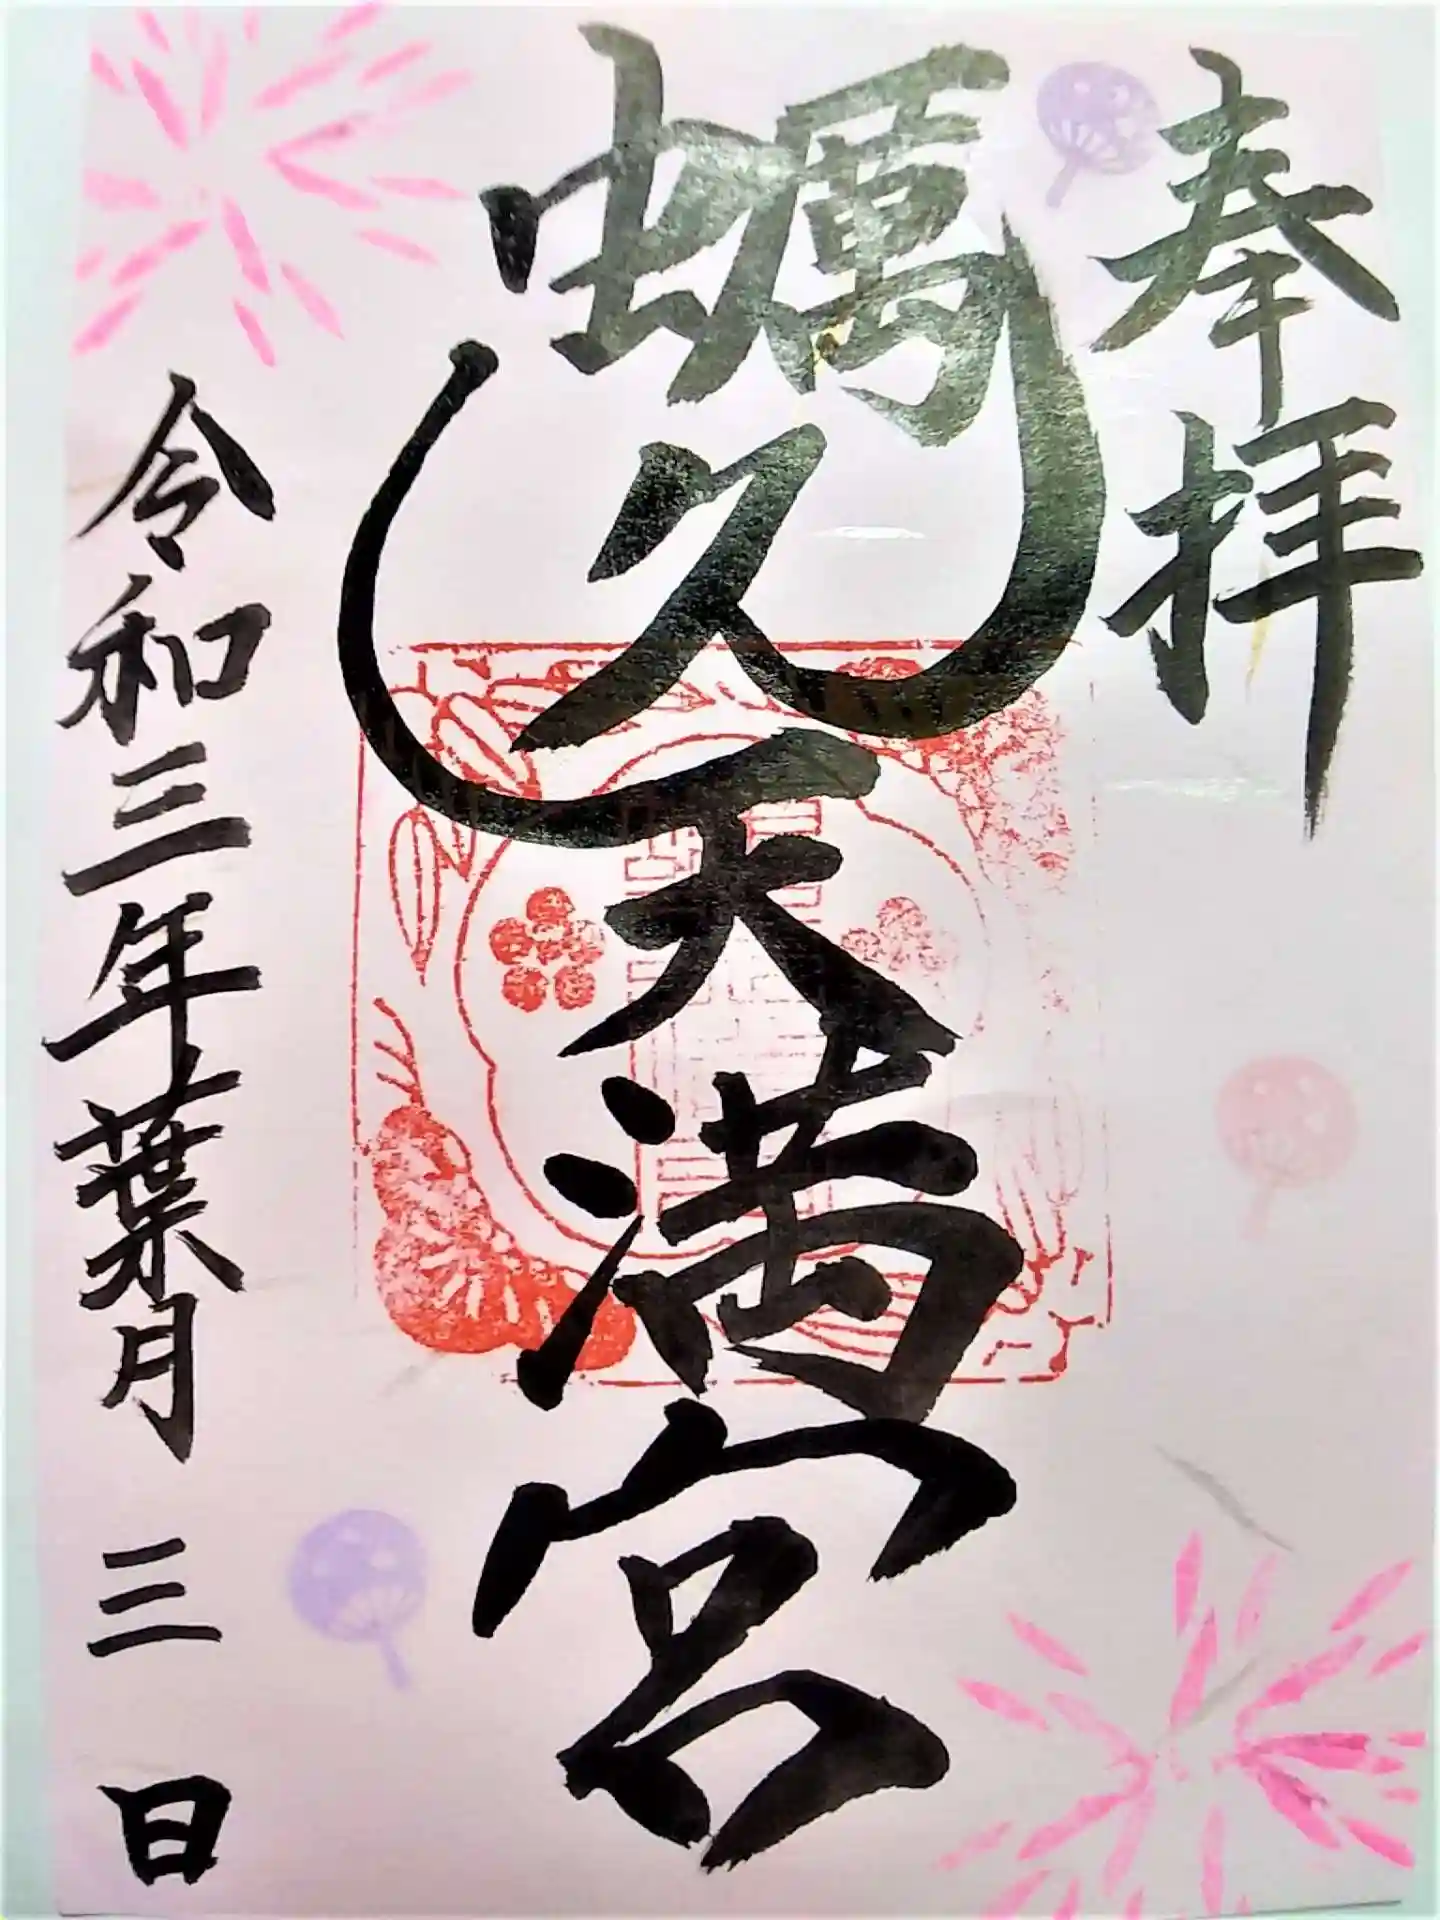 奉拝
蠣久天満宮
令和三年葉月三日